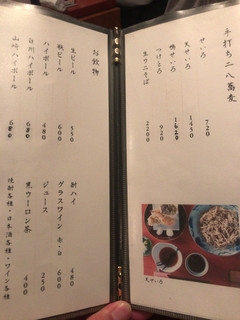 手打ち二八蕎麦
せいろ 720
天せいろ 1450
鴨せいろ 1620
つけとろ 920
生ウニそば 2200
天せいろ
お飲物
生ビール 550
瓶ビール 600
ハイボール 480
白州ハイボール 680
山崎ハイボール 680
酎ハイ 480
グラスワイン 赤・白 600
ジュース 250
黒ウーロン茶 400
焼酎各種・日本酒各種・ワイン各種